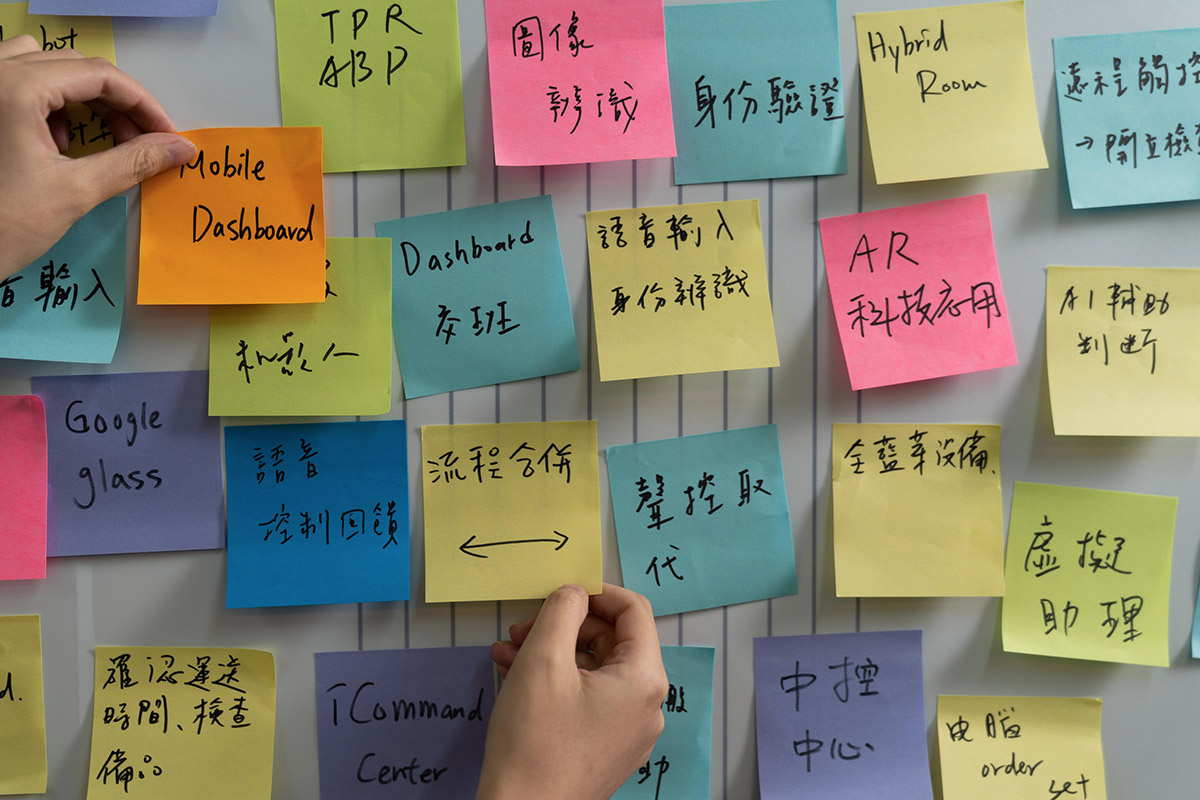 bot
計算
TPR
ABP
圖像
辨識
身份驗證
Hybrid
Room
遠程觸控
→開立檢
Mobile
Dashboard
輸入
機器人
Dashboard
交班
語音輸入
身份辨識
AR
科技應用
AI輔助
判斷
Google
glass
語音
控制回饋
流程合併
聲控取
代
全藍芽設備
虛擬
助理
d.
確認運送
時間、檢查
備品
iCommand
Center
助
中控
中心
电腦
order
set